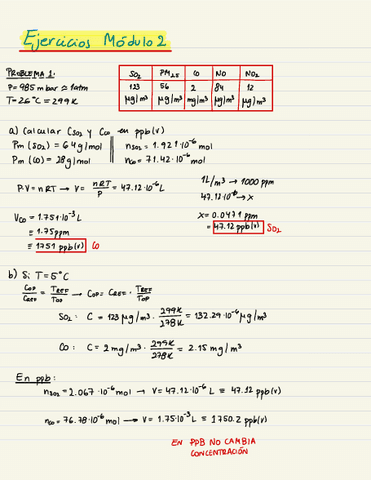 Ejercicios Módulo 2
PROBLEMA 1:
P = 985 mbar ≈ 1atm
T = 26°C = 299K
SO2 PM2.5 CO NO NO2
123 56 2 84 12
µg/m³ µg/m³ mg/m³ µg/m³ µg/m³
a) Calcular CSO2 y CCO en ppb(v)
Pm (SO2) = 64g/mol nSO2 = 1.921·10⁻⁶ mol
Pm (CO) = 28g/mol nCO = 71.42·10⁻⁶ mol
P·V = nRT → V = nRT/P = 47.12·10⁻⁶ L
1L/m³ → 1000 ppm
47.12·10⁻⁶ → X
VCO = 1.751·10⁻³ L
= 1.75ppm
= 1751 ppb(v) CO
X = 0.0471 ppm
= 47.12 ppb(v) SO2
b) Si T = 5°C
COP/CREF = TREF/TOP → COP = CREF · TREF/TOP
SO2: C = 123 µg/m³ · 299K/278K = 132.29·10⁻⁶ µg/m³
CO: C = 2 mg/m³ · 299K/278K = 2.15 mg/m³
En ppb:
nSO2 = 2.067·10⁻⁶ mol → V = 47.12·10⁻⁶ L = 47.12 ppb(v)
nCO = 76.78·10⁻⁶ mol → V = 1.75·10⁻³ L = 1750.2 ppb(v)
EN PPB NO CAMBIA
CONCENTRACIÓN